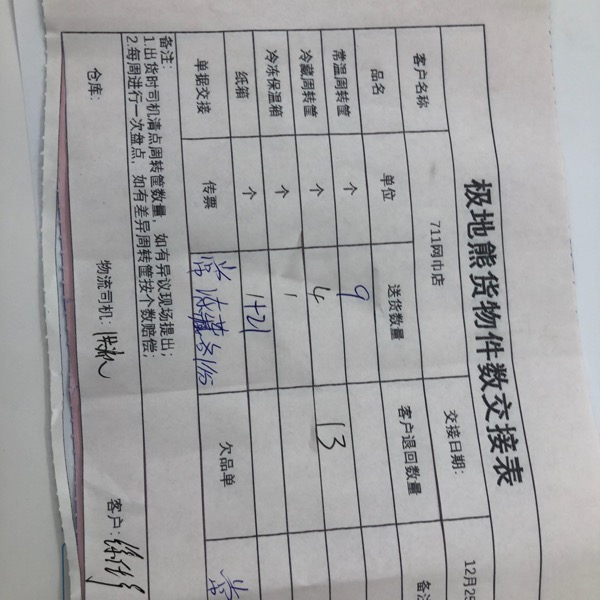 极地熊货物件数交接表
客户名称 711网巾店 交接日期: 12月25
品名 单位 送货数量 客户退回数量 备注
常温周转筐 个 9
冷藏周转筐 个 4 13
冷冻保温箱 个 1
纸箱 个 1+21
单据交接 传票 常冻藏各1份 欠品单 常
备注:
1.出货时司机清点周转筐数量,如有异议现场提出;
2.每周进行一次盘点,如有差异周转筐按个数赔偿;
仓库: 物流司机: 客户: